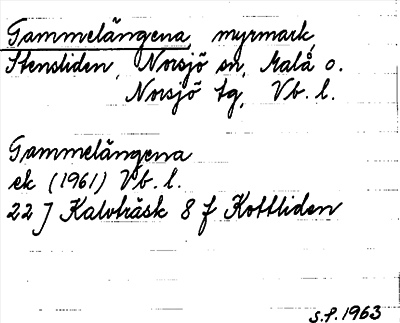 Gammelängena, myrmark,
Stensliden, Norsjö sn, Malå o.
Norsjö tg, Vb. l.
Gammelängena
ek (1961) Vb. l.
22 J Kalvträsk 8 f Kottliden
S.F. 1963